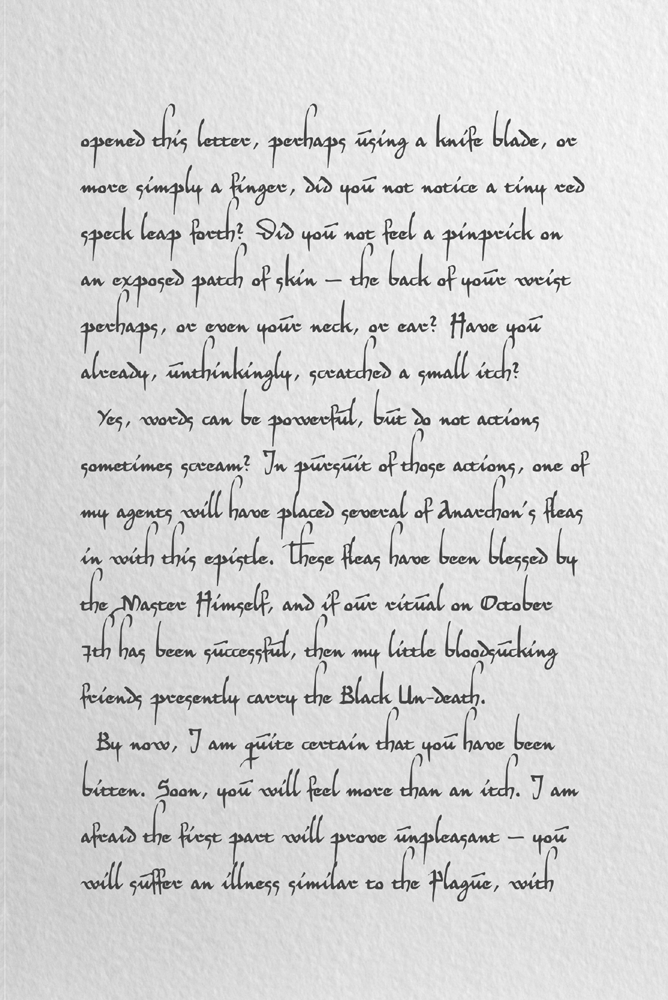 opened this letter, perhaps using a knife blade, or
more simply a finger, did you not notice a tiny red
speck leap forth? Did you not feel a pinprick on
an exposed patch of skin – the back of your wrist
perhaps, or even your neck, or ear? Have you
already, unthinkingly, scratched a small itch?
Yes, words can be powerful, but do not actions
sometimes scream? In pursuit of those actions, one of
my agents will have placed several of Anarchon's fleas
in with this epistle. These fleas have been blessed by
the Master Himself, and if our ritual on October
7th has been successful, then my little bloodsucking
friends presently carry the Black Un-death.
By now, I am quite certain that you have been
bitten. Soon, you will feel more than an itch. I am
afraid the first part will prove unpleasant – you
will suffer an illness similar to the Plague, with